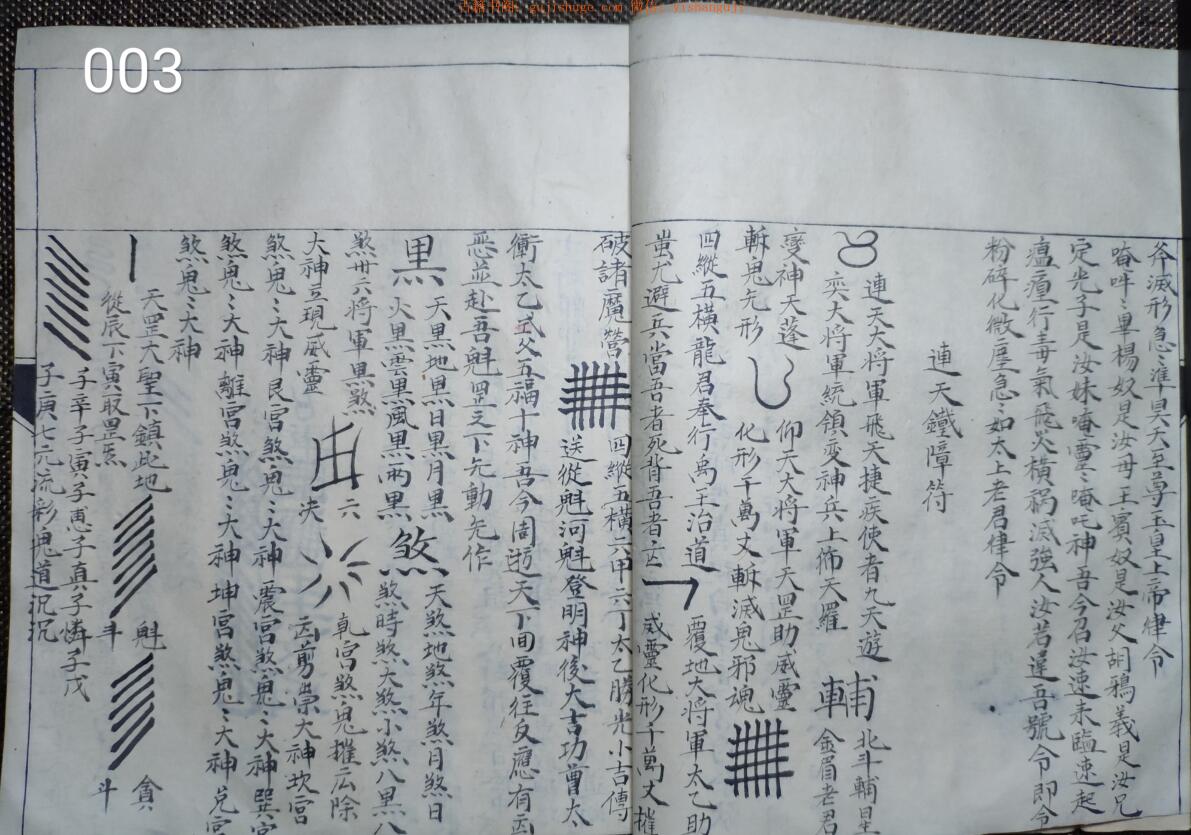 古籍书阁: gujishuge.com 微信: yishanguji
003
斧滅形急〻準昊天至尊玉皇上帝律令
唵吽〻單楊奴是汝母王賓奴是汝父胡鴉義是汝兄
定光子是汝妹唵靈〻唵吒神吾今召汝速来臨速起
瘟㾮行毒氣飛火橫禍滅強人汝若違吾號令即令
粉碎化微塵急〻如太上老君律令
連天鐵障符
連天大將軍飛天捷疾使者九天遊
奕大將軍統領变神兵上佈天羅
輔
北斗輔星
金眉老君
变神天蓬
仰天大將軍天罡助威靈
斬鬼先形
化形千萬丈斬滅鬼邪魂
四縱五橫龍君奉行禹王治道
覆地大將軍太乙助
蚩尤避兵當吾者死背吾者亡
威靈化形千萬丈摧
破諸魔營
四縱五橫六甲六丁太乙勝光小吉傳
送從魁河魁登明神後大吉功曹太
衝太乙式父五福十神吾今周迊天下回覆往反應有凶
惡並赴吾魁罡之下先動先作
黑
天黑地黑日黑月黑
火黑雲黑風黑雨黑
煞
天煞地煞年煞月煞日
煞時煞大煞小煞八黑八
煞卅六將軍黑煞
六
乾宮煞鬼摧広除
大神豆現威靈
凶剪祟大神坎宮
煞鬼〻大神艮宮煞鬼〻大神震宮煞鬼〻大神巽宮
煞鬼〻大神離宮煞鬼〻大神坤宮煞鬼〻大神兑宮
煞鬼〻大神
天罡大聖下鎮此地
從辰下寅取罡炁
魁
斗
貪
斗
子辛子寅子惠子真子憐子戊
子庚七元流彩鬼道沉沉